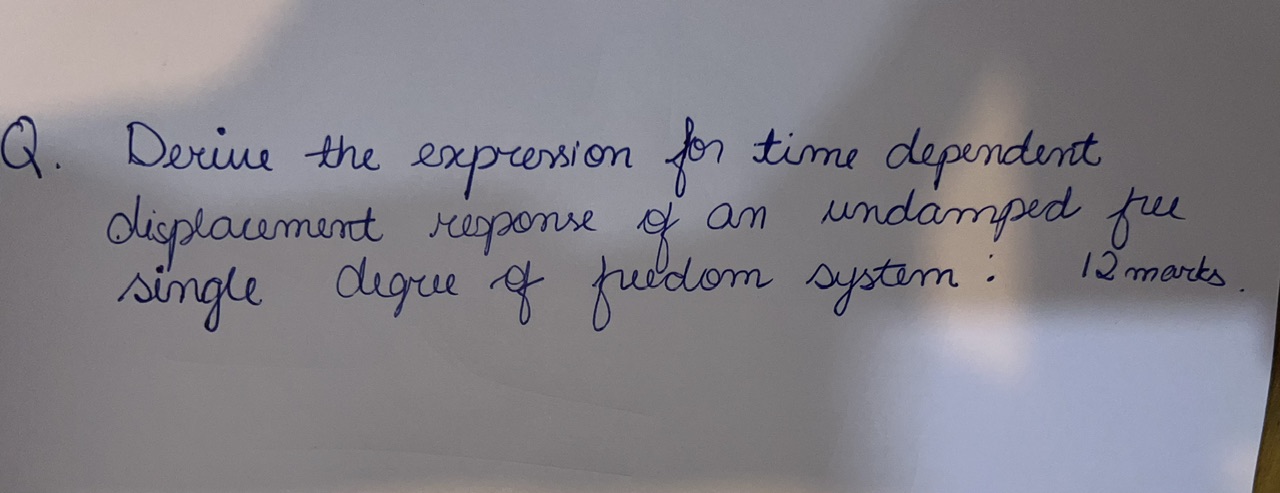 Q. Derive the expression for time dependent
displacement response of an undamped free
single degree of freedom system : 12 marks.